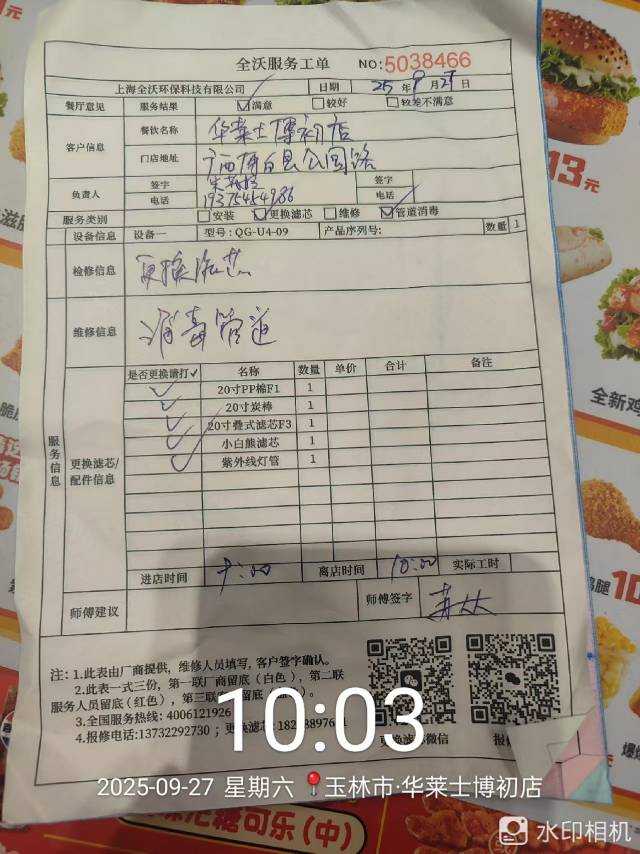 全沃服务工单 NO:5038466
上海全沃环保科技有限公司 日期 25年9月27日
餐厅意见 服务结果 ☑满意 □较好 □较差不满意
客户信息 餐饮名称 华莱士博初店
门店地址 广西博白县公园路
负责人 签字 签字
电话 19375454986 电话
服务类别 □安装 ☑更换滤芯 □维修 ☑管道消毒
设备信息 设备一 型号:QG-U4-09 产品序列号: 数量 1
检修信息 更换滤芯
维修信息 消毒管道
服务信息
更换滤芯/配件信息
是否更换请打✓ 名称 数量 单价 合计 备注
✓ 20寸PP棉F1 1
✓ 20寸炭棒 1
✓ 20寸叠式滤芯F3 1
✓ 小白熊滤芯 1
✓ 紫外线灯管 1
进店时间 9:00 离店时间 10:00 实际工时
师傅建议 师傅签字
注:1.此表由厂商提供,维修人员填写,客户签字确认。
2.此表一式三份,第一联厂商留底(白色),第二联
服务人员留底(红色),第三联
3.全国服务热线:4006121926
4.报修电话:13732292730;更换滤芯
更换滤芯微信 报修
10:03
2025-09-27 星期六 玉林市·华莱士博初店
水印相机
13元
全新鸡
10
可乐(中)